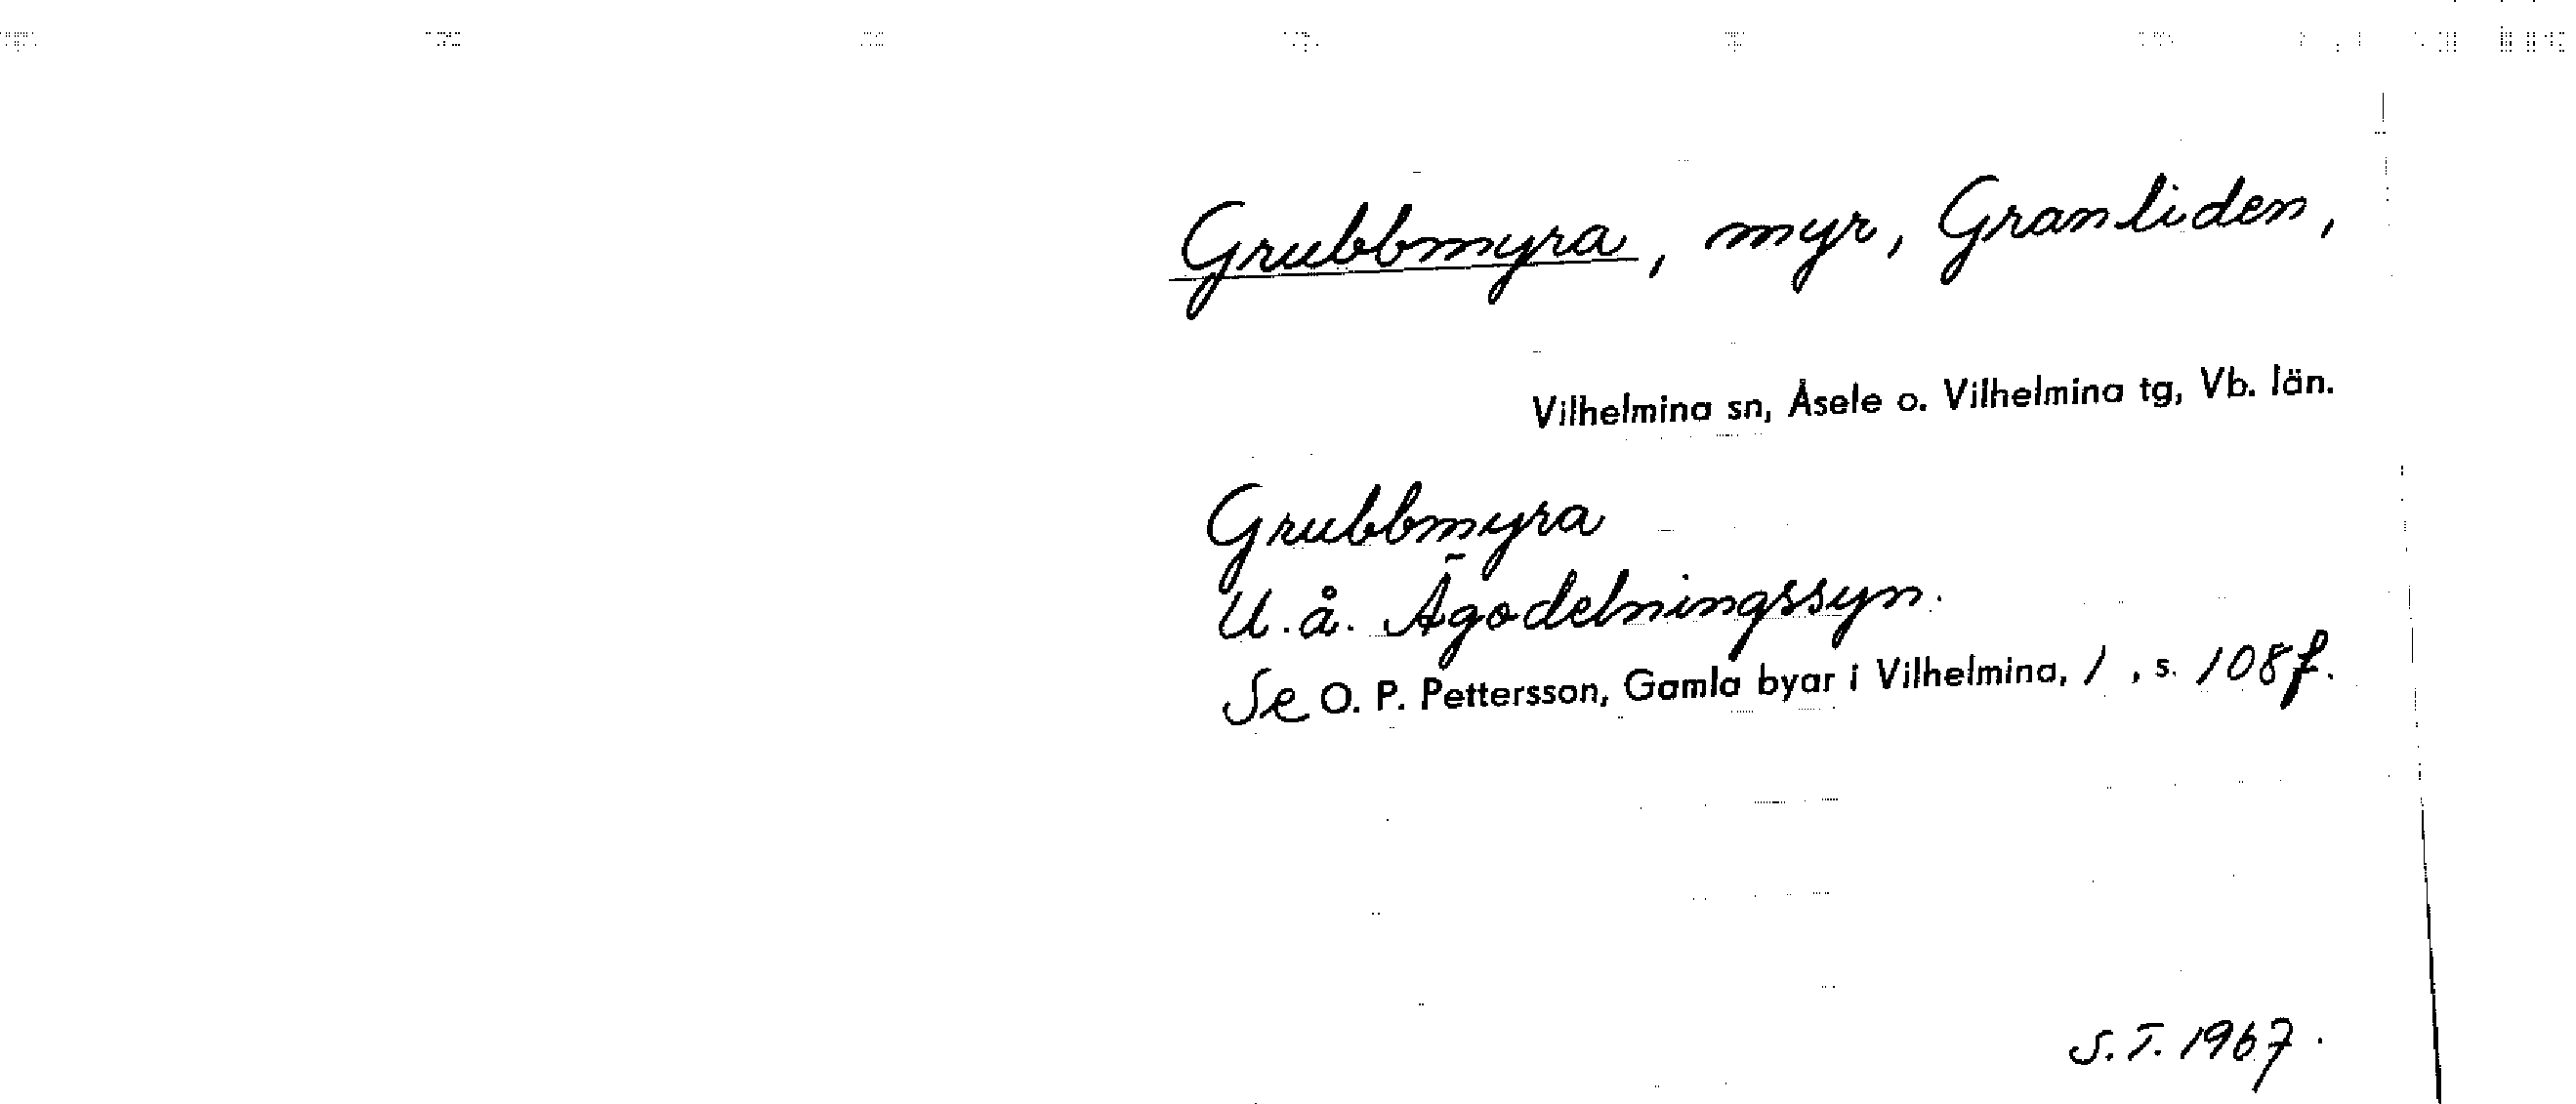 Grubbmyra, myr, Granliden,
Vilhelmina sn, Åsele o. Vilhelmina tg, Vb. län.
Grubbmyra
U. å. Ägodelningssyn.
Se O. P. Pettersson, Gamla byar i Vilhelmina, 1, s. 108 f.
S. T. 1967.